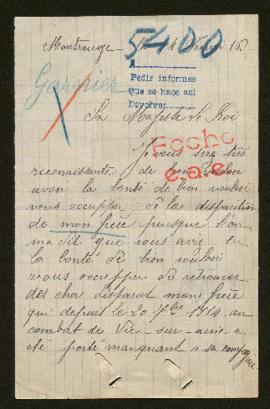 Montrouge
5400
A
Pedir informes
que se hace aci
Devolver
Garnier
Sa Majesté le Roi
Hecho
Je vous serai très
reconnaissante de bien vouloir
avoir la bonté de bien vouloir
vous occupper à la disparition
de mon frère puisque l'on
m'a dit que vous avie
la bonté de bien vouloir
vous occupper de retrouver
des cher disparut mon frère
qui depuis le 20 7bre 1914 au
combat de Vic-sur-aisne a
été porté manquant a sa compagnie